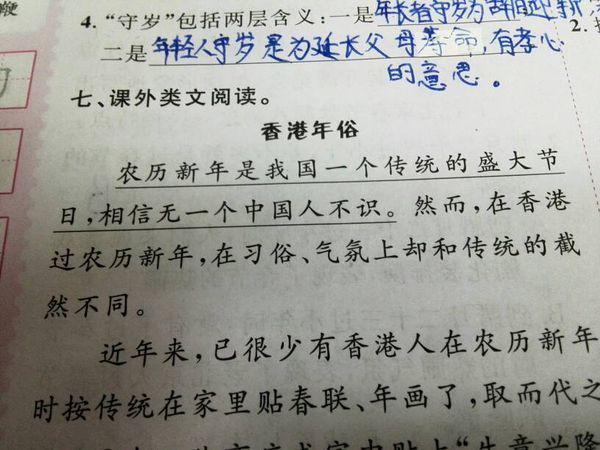 鞭
4.“守岁”包括两层含义:一是年长者守岁为辞旧迎新
2.
二是年轻人守岁是为延长父母寿命,有孝心
的意思。
七、课外类文阅读。
香港年俗
农历新年是我国一个传统的盛大节
日,相信无一个中国人不识。然而,在香港
过农历新年,在习俗、气氛上却和传统的截
然不同。
近年来,已很少有香港人在农历新年
时按传统在家里贴春联、年画了,取而代之
贴上“生意兴隆